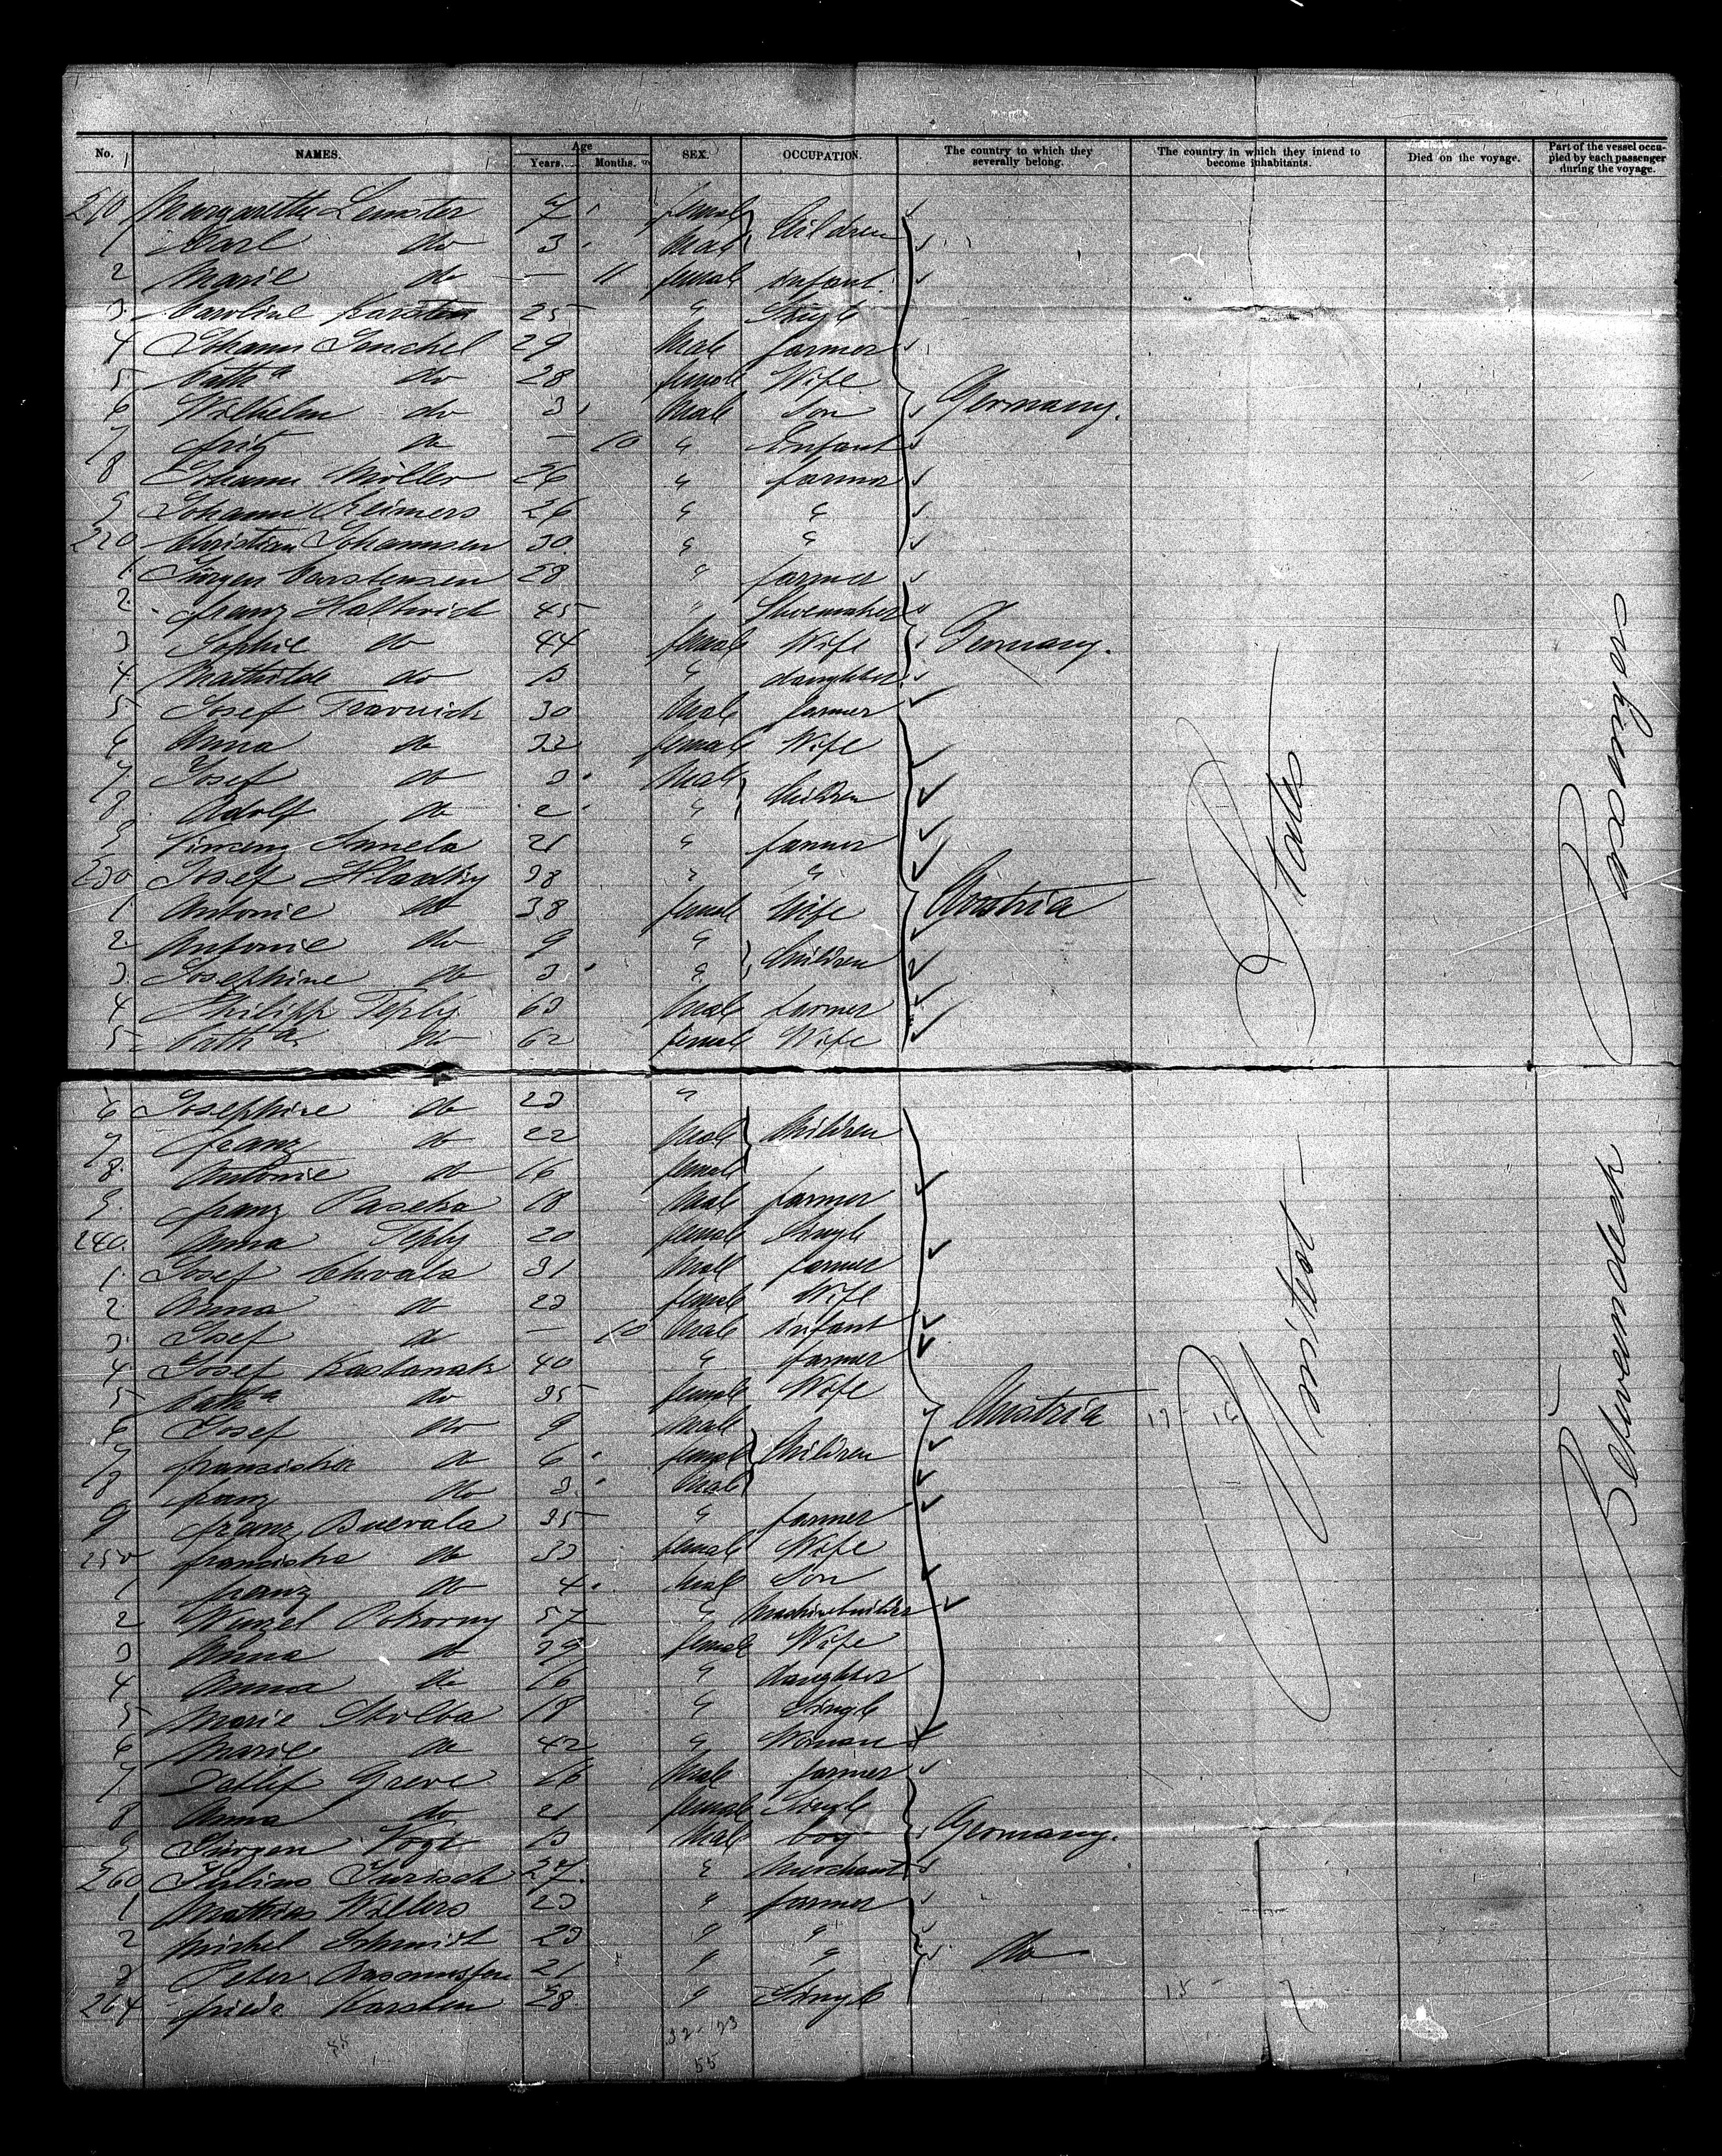 No. NAMES. Age Years. Months. SEX. OCCUPATION. The country to which they severally belong. The country in which they intend to become inhabitants. Died on the voyage. Part of the vessel occupied by each passenger during the voyage.
210 Margaretha 7 female Children
1 Karl do 3 Male
2 Marie do — 11 female infant
3 Caroline Karsten 25 " Single
4 Johann 29 Male farmer
5 Cath a do 28 female Wife
6 Wilhelm do 3 Male Son Germany.
7 fritz do — 10 " Infant
8 Johann Möller 26 " farmer
9 Johann Reimers 26 " "
220 Christian Johannsen 30 " "
1 Jürgen Carstensen 28 " farmer
2 franz 45 " Shoemaker
3 Sophie do 44 female Wife Germany.
4 Mathilde do " daughter
5 Josef Travnick 30 Male farmer
6 Anna do 32 female Wife
7 Josef do 3 Male Children
8 Adolf do 2 "
9 Vincenz 21 " farmer
230 Josef Hladky 38 " "
1 Antonie do 38 female Wife Austria
2 Antonie do 9 " Children
3 Josephine do 3 "
4 Philipp Teply 63 Male farmer
5 Cath a do 62 female Wife
6 Josephine do 23 "
7 franz do 22 Male Children
8 Antonie do 16 female
9 franz Paseka 18 Male farmer
240 Anna Teply 20 female Single
1 Josef Chvala 31 Male farmer
2 Anna do 23 female Wife
3 Josef do — 10 Male infant
4 Josef Kastanek 40 " farmer
5 Cath a do 35 female Wife
6 Josef do 9 Male Austria
7 franziska do 6 female Children
8 franz do 3 Male
9 franz 35 " farmer
250 franziska do 33 female Wife
1 franz do 4 Male Son
2 Wenzel Pokorny 57 " Machinebuilder
3 Anna do 39 female Wife
4 Anna do 16 " daughter
5 Marie Skolba 18 " Single
6 Marie do 42 " Woman
7 Detlef Greve 26 Male farmer
8 Anna do 21 female Single
9 Jürgen Vogt Male boy Germany.
260 Julius 27 " Merchant
1 Matthias Willers 23 " farmer
2 Michel Schmidt 23 " "
3 Peter Rasmussen 21 " " do
264 frieda Karsten 28 " Single
32 - 23
55
United States
Betweendeck Passengers